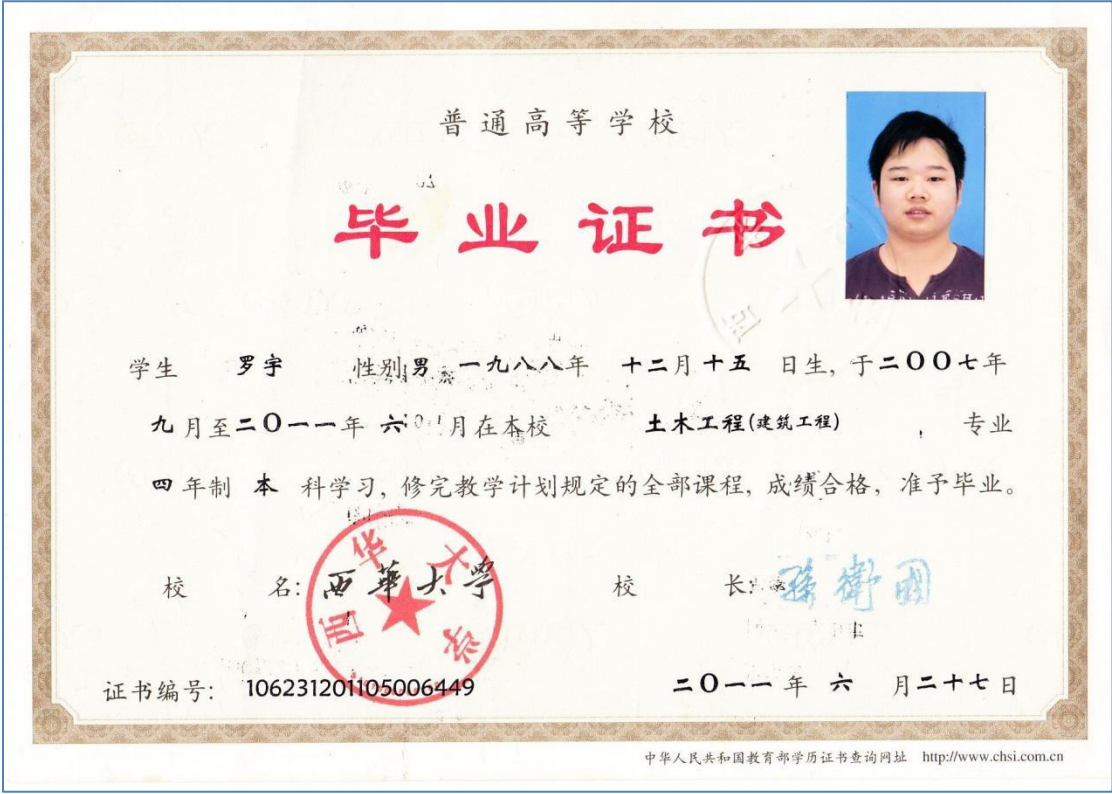 普通高等学校
毕业证书
学生 罗宇 性别 男 一九八八年 十二月十五 日生, 于二〇〇七年
九月至二〇一一年 六 月在本校 土木工程(建筑工程) , 专业
四年制 本 科学习, 修完教学计划规定的全部课程, 成绩合格, 准予毕业。
校 名: 西華大学 校 长: 孫衛國
西华大学
证书编号: 106231201105006449 二〇一一年 六 月二十七日
中华人民共和国教育部学历证书查询网址 http://www.chsi.com.cn